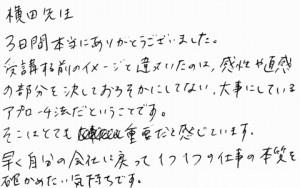 横田先生
3日間本当にありがとうございました。
受講する前のイメージと違っていたのは、感性や直感
の部分を決しておろそかにしてない、大事にしている
アプローチ法だということです。
そこはとても重要だと感じています。
早く自分の会社に戻って1つ1つの仕事の本質を
確かめたい気持ちです。